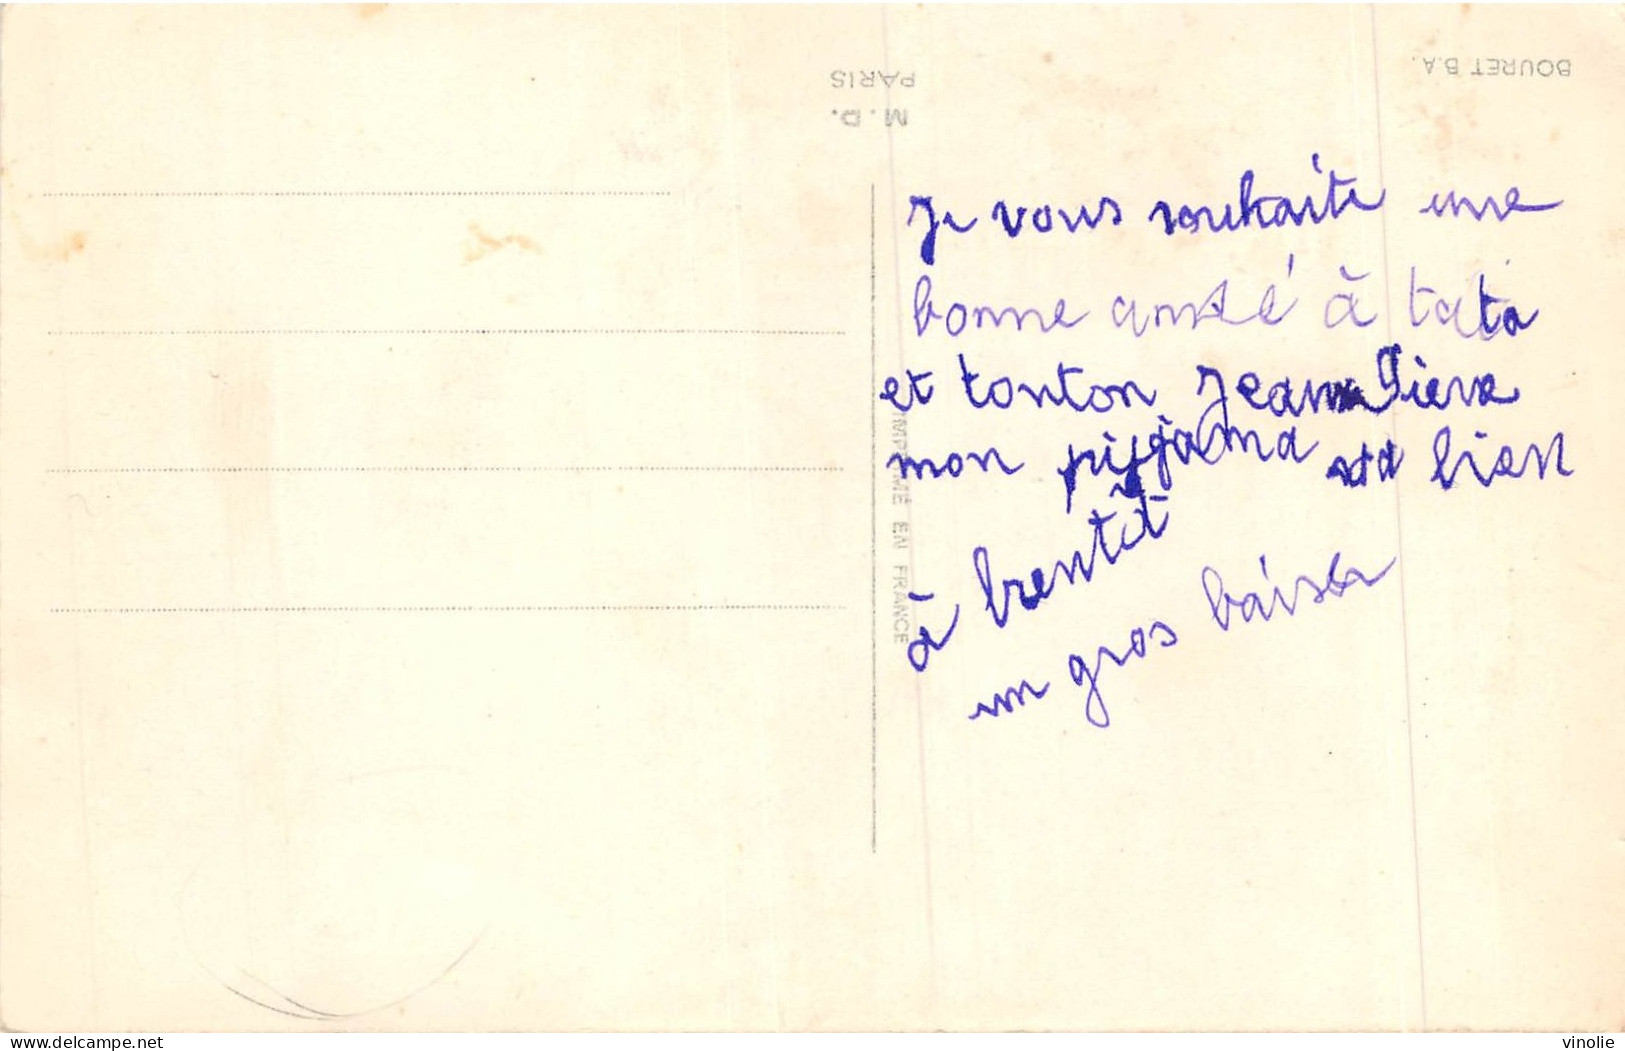 BOURET B.A.
M. D.
PARIS
Je vous souhaite une
bonne année à tata
et tonton Jean Piere
mon pijama va bien
à bientit
un gros baiser
IMPRIMÉ EN FRANCE
www.delcampe.net
vinolie